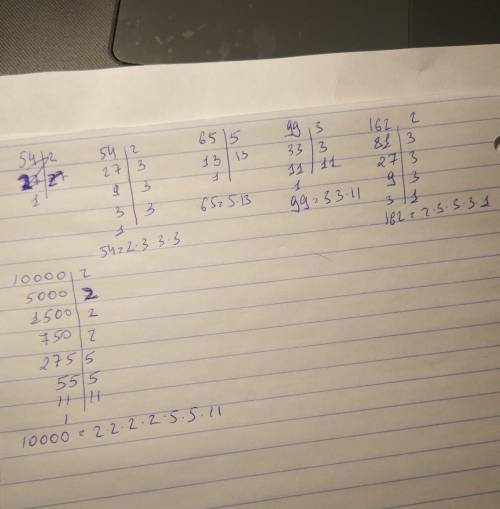 54 | 2
27 | 27
1

54 | 2
27 | 3
9 | 3
3 | 3
1
54=2·3·3·3

65 | 5
13 | 13
1
65=5·13

99 | 3
33 | 3
11 | 11
1
99=3·3·11

162 | 2
81 | 3
27 | 3
9 | 3
3 | 1
162=2·3·3·3·1

10000 | 2
5000 | 2
1500 | 2
750 | 2
275 | 5
55 | 5
11 | 11
1
10000 = 2·2·2·2·5·5·11